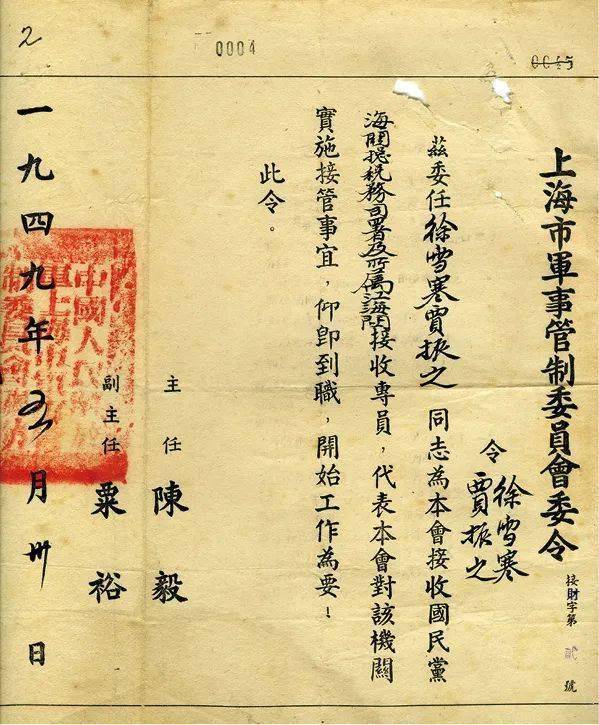 0045
0004
2
上海市軍事管制委員會委令
接財字第貳號
令
徐雪寒
賈振之
茲委任徐雪寒賈振之同志為本會接收國民黨
海関捴税務司署及所属江海関接收專員，代表本會對該機關
實施接管事宜，仰卽到職，開始工作為要！
此令。
主任 陳毅
副主任 粟裕
一九四九年五月卅日
中國人民
軍上海市
制委員會